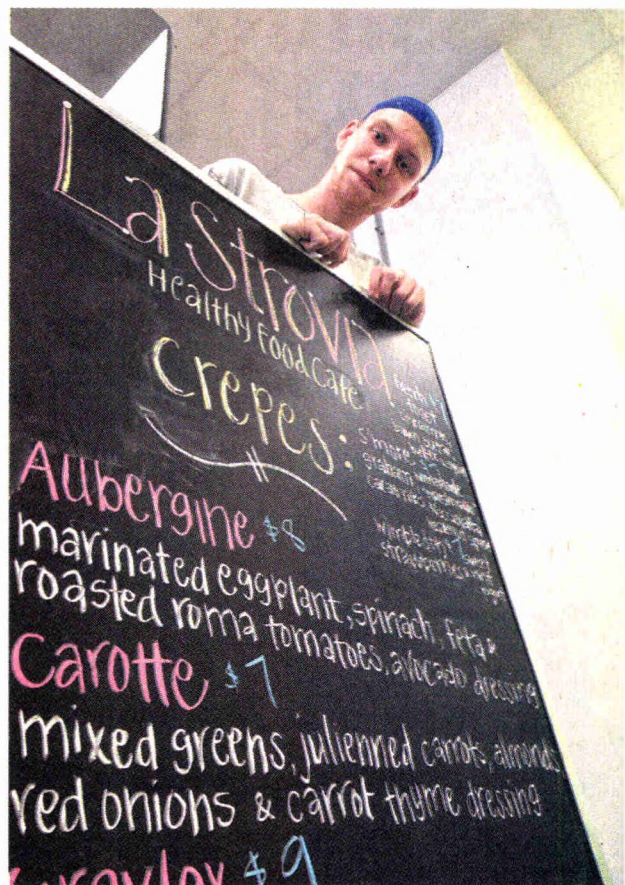 La Strovia
Healthy Food Cafe
Crepes:
Aubergine $8
marinated eggplant, spinach, feta &
roasted roma tomatoes, avocado dressing
Carotte $7
mixed greens, julienned carrots, almonds,
red onions & carrot thyme dressing
Gravlox $9
S'more
graham
strawberry